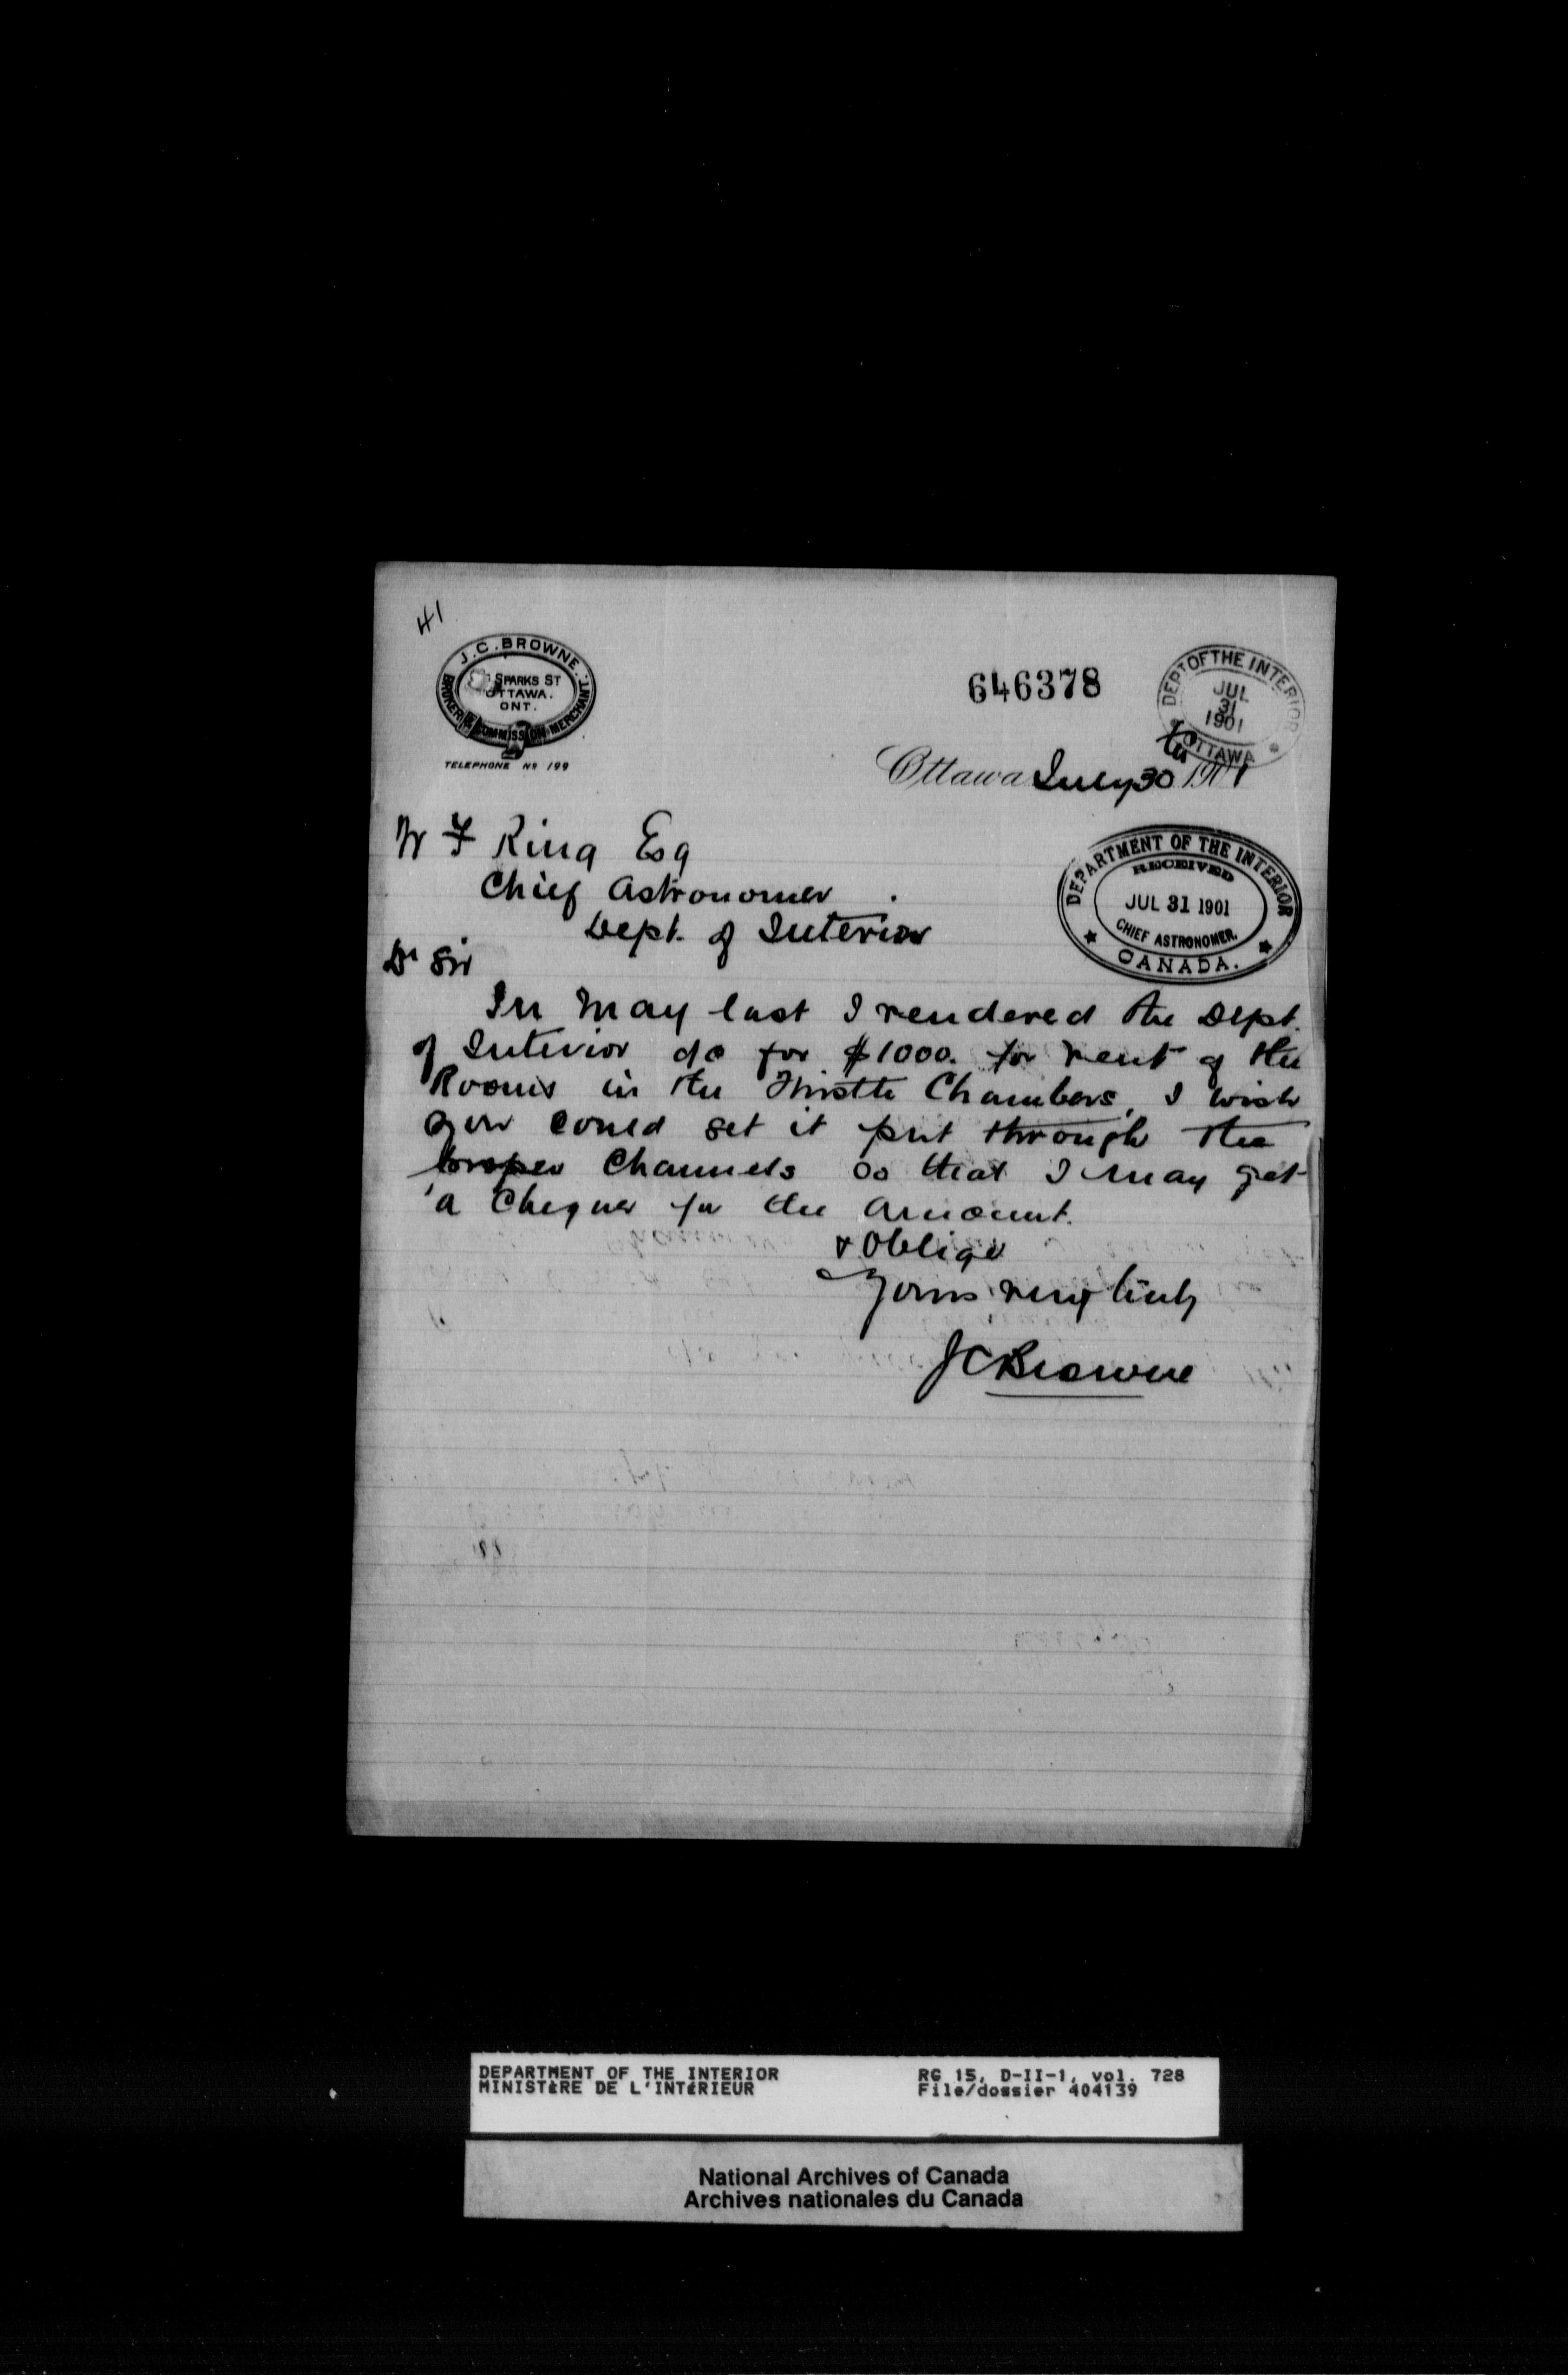 41
J.C. BROWNE.
SPARKS ST
OTTAWA.
ONT.
BROKER & COMMISSION MERCHANT.
TELEPHONE No 199
646378
DEPT OF THE INTERIOR
JUL
31
1901
OTTAWA
Ottawa July 30 1901
W F King Esq
Chief Astronomer
Dept. of Interior
DEPARTMENT OF THE INTERIOR
RECEIVED
JUL 31 1901
CHIEF ASTRONOMER.
CANADA.
Dr Sir
In May last I rendered the Dept.
of Interior a/c for $1000. for rent of the
Rooms in the Thistle Chambers, I wish
you could get it put through the
proper Channels so that I may get
a Cheque for the amount.
& Oblige
Yours very truly
JC Browne
DEPARTMENT OF THE INTERIOR
MINISTÈRE DE L'INTÉRIEUR
RG 15, D-II-1, vol. 728
File/dossier 404139
National Archives of Canada
Archives nationales du Canada